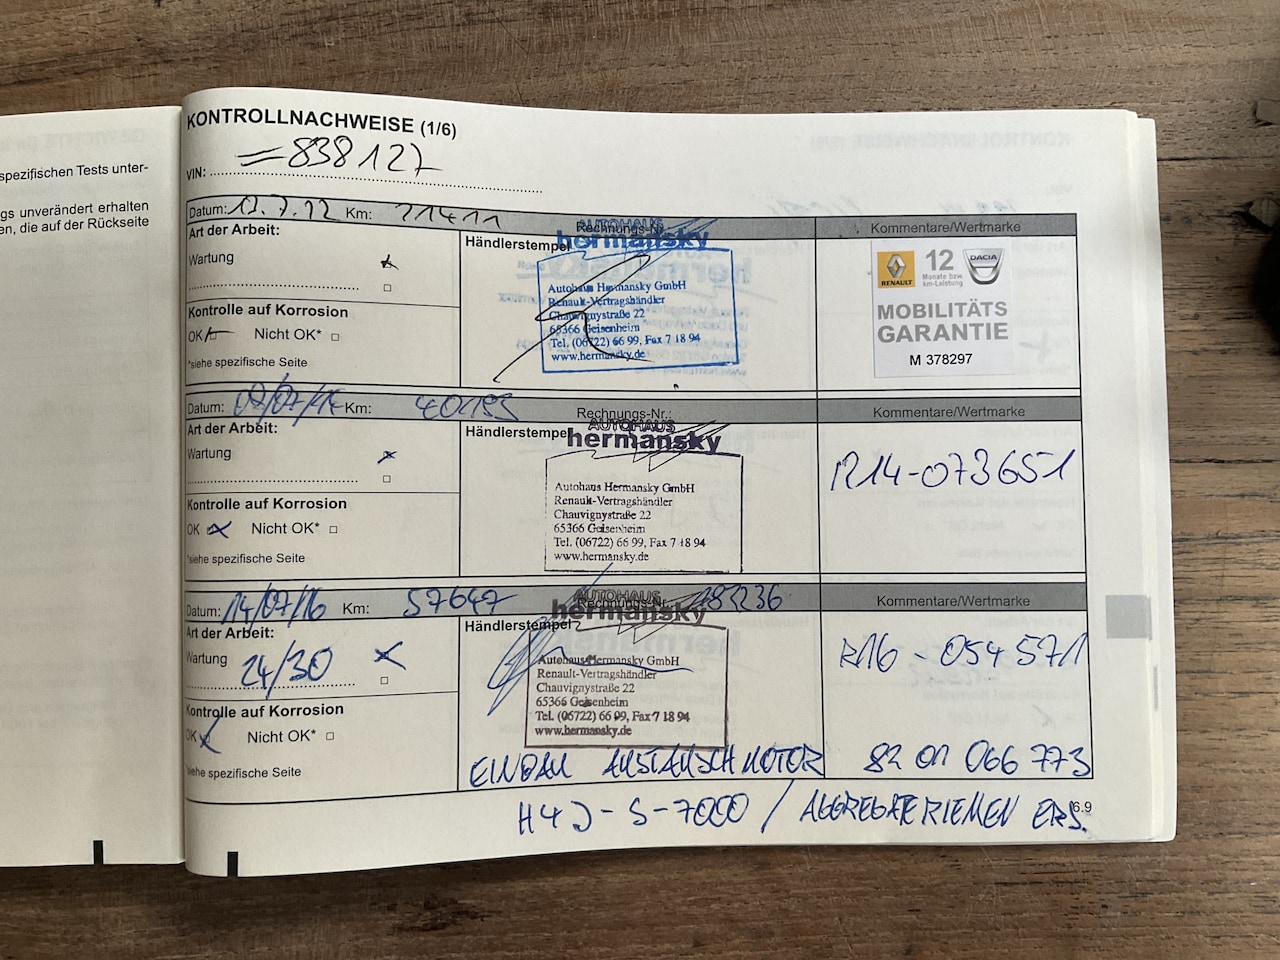 spezifischen Tests unter-
gs unverändert erhalten
en, die auf der Rückseite
KONTROLLNACHWEISE (1/6)
VIN: 838127
Datum: Km: 21411 Rechnungs-Nr. Kommentare/Wertmarke
Art der Arbeit:
Wartung
Kontrolle auf Korrosion
OK Nicht OK*
*siehe spezifische Seite
Händlerstempel
AUTOHAUS
hermansky
Autohaus Hermansky GmbH
Renault-Vertragshändler
Chauvignystraße 22
65366 Geisenheim
Tel. (06722) 66 99, Fax 7 18 94
www.hermansky.de
RENAULT
12
Monate bzw.
km-Leistung
DACIA
MOBILITÄTS
GARANTIE
M 378297
Datum: Km: Rechnungs-Nr.: Kommentare/Wertmarke
Art der Arbeit:
Wartung
Kontrolle auf Korrosion
OK Nicht OK*
*siehe spezifische Seite
Händlerstempel
AUTOHAUS
hermansky
Autohaus Hermansky GmbH
Renault-Vertragshändler
Chauvignystraße 22
65366 Geisenheim
Tel. (06722) 66 99, Fax 7 18 94
www.hermansky.de
R14-073651
Datum: 14/07/16 Km: 57647 Rechnungs-Nr. Kommentare/Wertmarke
Art der Arbeit:
Wartung 24/30
Kontrolle auf Korrosion
OK Nicht OK*
*siehe spezifische Seite
Händlerstempel
AUTOHAUS
hermansky
Autohaus Hermansky GmbH
Renault-Vertragshändler
Chauvignystraße 22
65366 Geisenheim
Tel. (06722) 66 99, Fax 7 18 94
www.hermansky.de
R16-054571
EINBAU AUSTAUSCHMOTOR 82 01 066 773
H4J-S-7000 / AGGREGATERIEMEN ERS.
6.9